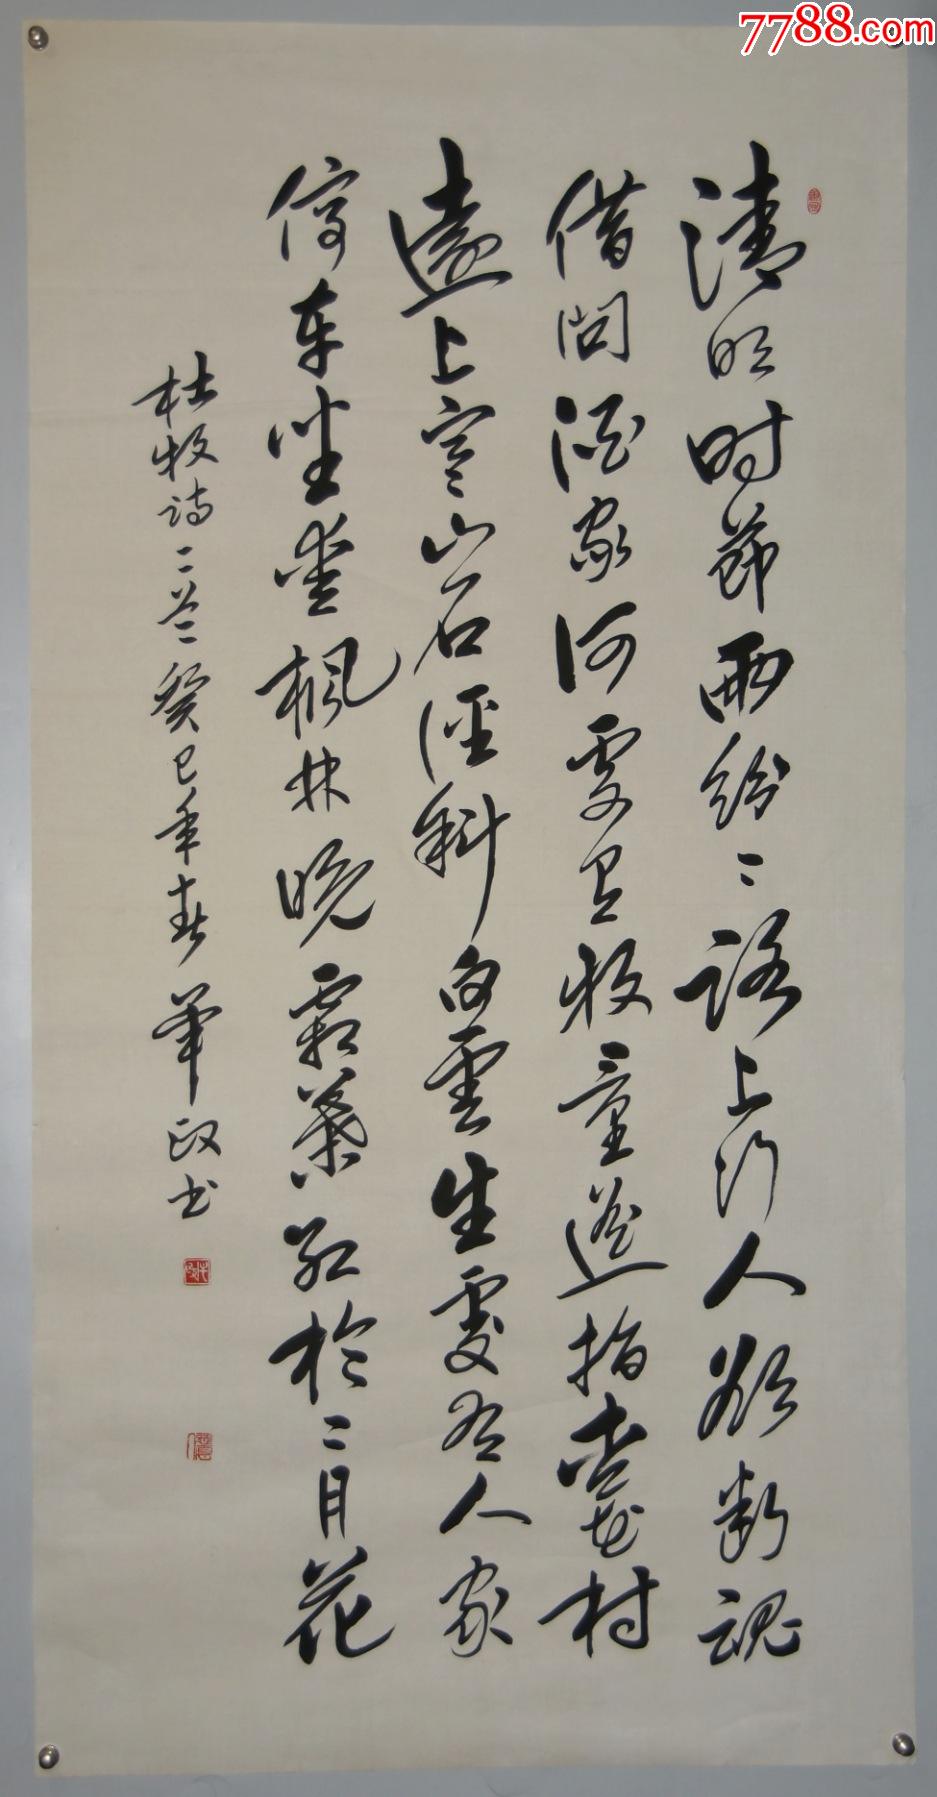 7788.com
清明时节雨纷〻路上行人欲断魂
借问酒家何處有牧童遥指杏花村
遠上寒山石徑斜白雲生處有人家
停车坐愛枫林晚霜葉红於二月花
杜牧诗二首癸巳年春
书